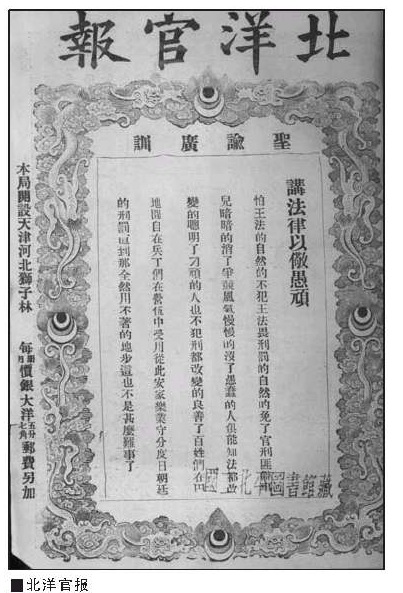 北洋官報
聖諭廣訓
講法律以儆愚頑
怕王法的自然的不犯王法畏刑罰的自然的免了官刑匪
兒暗暗的消了爭競風氣慢慢的沒了愚蠢的人俱能知法都改
變的聰明了刁頑的人也不犯刑都改變的良善了百姓們在田
地間自在兵丁們在營伍中受用從此安家樂業守分度日朝廷
的刑罰直到那全然用不著的地步這也不是甚麼難事了
圖書館藏
本局開設天津河北獅子林 每冊月價銀大洋五分七角郵費另加
■北洋官报